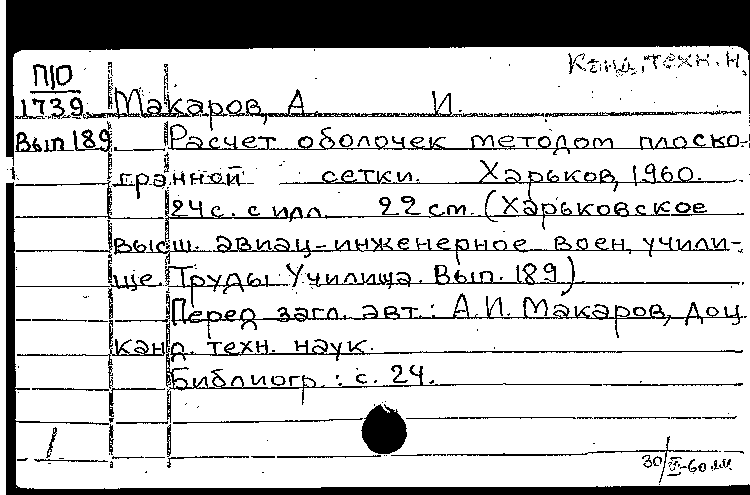 Канд. техн. н.
П/О
1739 Макаров, А. И.
Вып 189. Расчет оболочек методом плоско-
гранной сетки. Харьков, 1960.
24 с. с илл. 22 см. (Харьковское
высш. авиац-инженерное воен. учили-
ще. Труды Училища. Вып. 189)
Перед загл. авт.: А. И. Макаров, доц.
канд. техн. наук.
Библиогр.: с. 24.